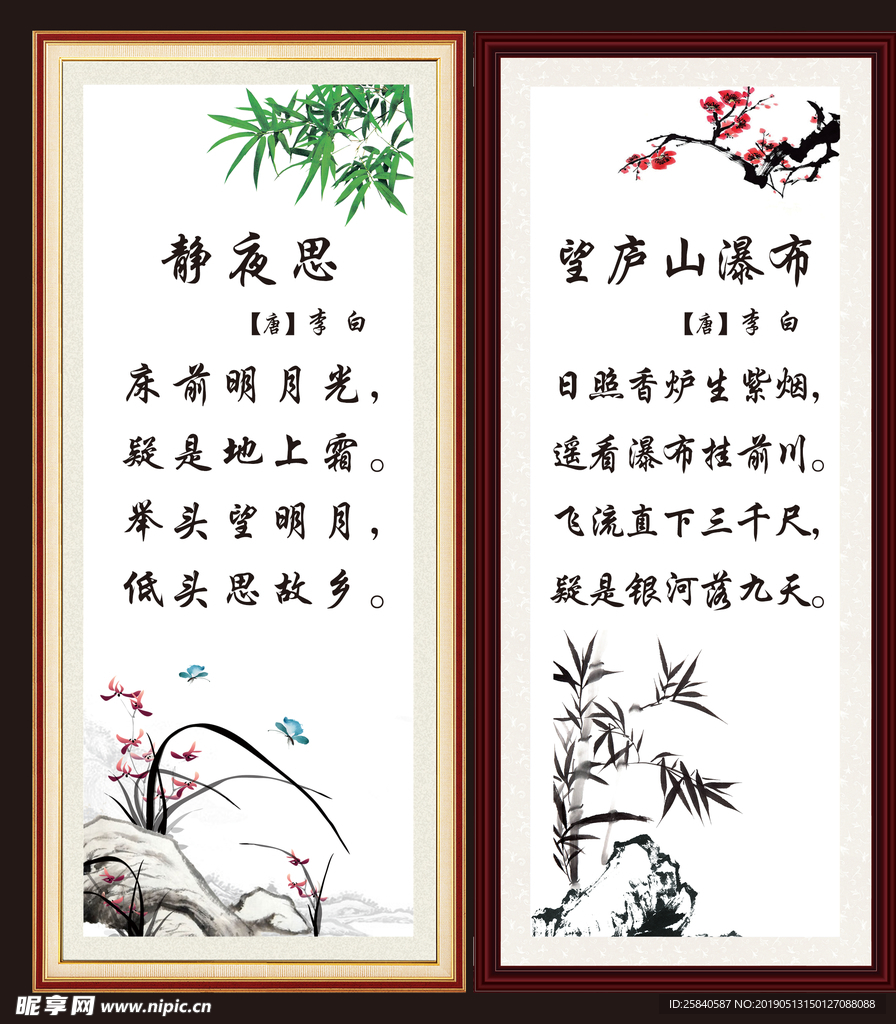 静夜思
【唐】李 白
床前明月光，
疑是地上霜。
举头望明月，
低头思故乡。
望庐山瀑布
【唐】李 白
日照香炉生紫烟，
遥看瀑布挂前川。
飞流直下三千尺，
疑是银河落九天。
昵享网 www.nipic.cn
ID:25840587 NO:20190513150127088088